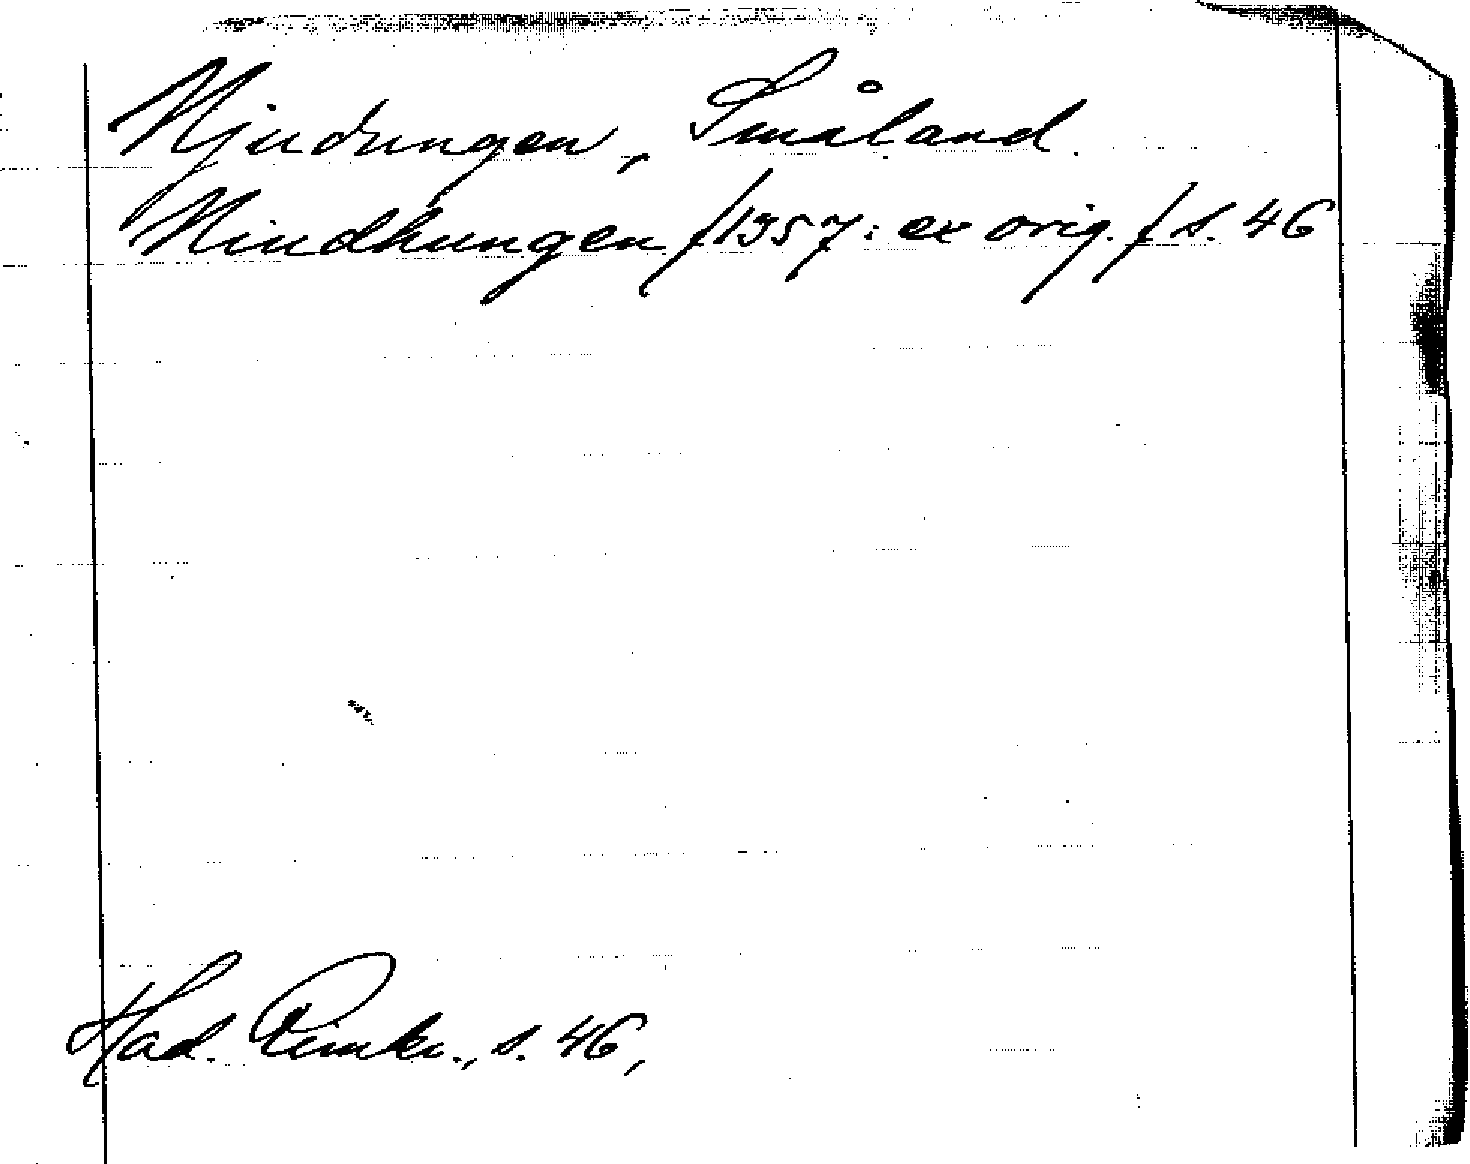 Njudungen, Småland.
Niudhungen /1357: ex orig./ s. 46
Had. Rimkr., s. 46,